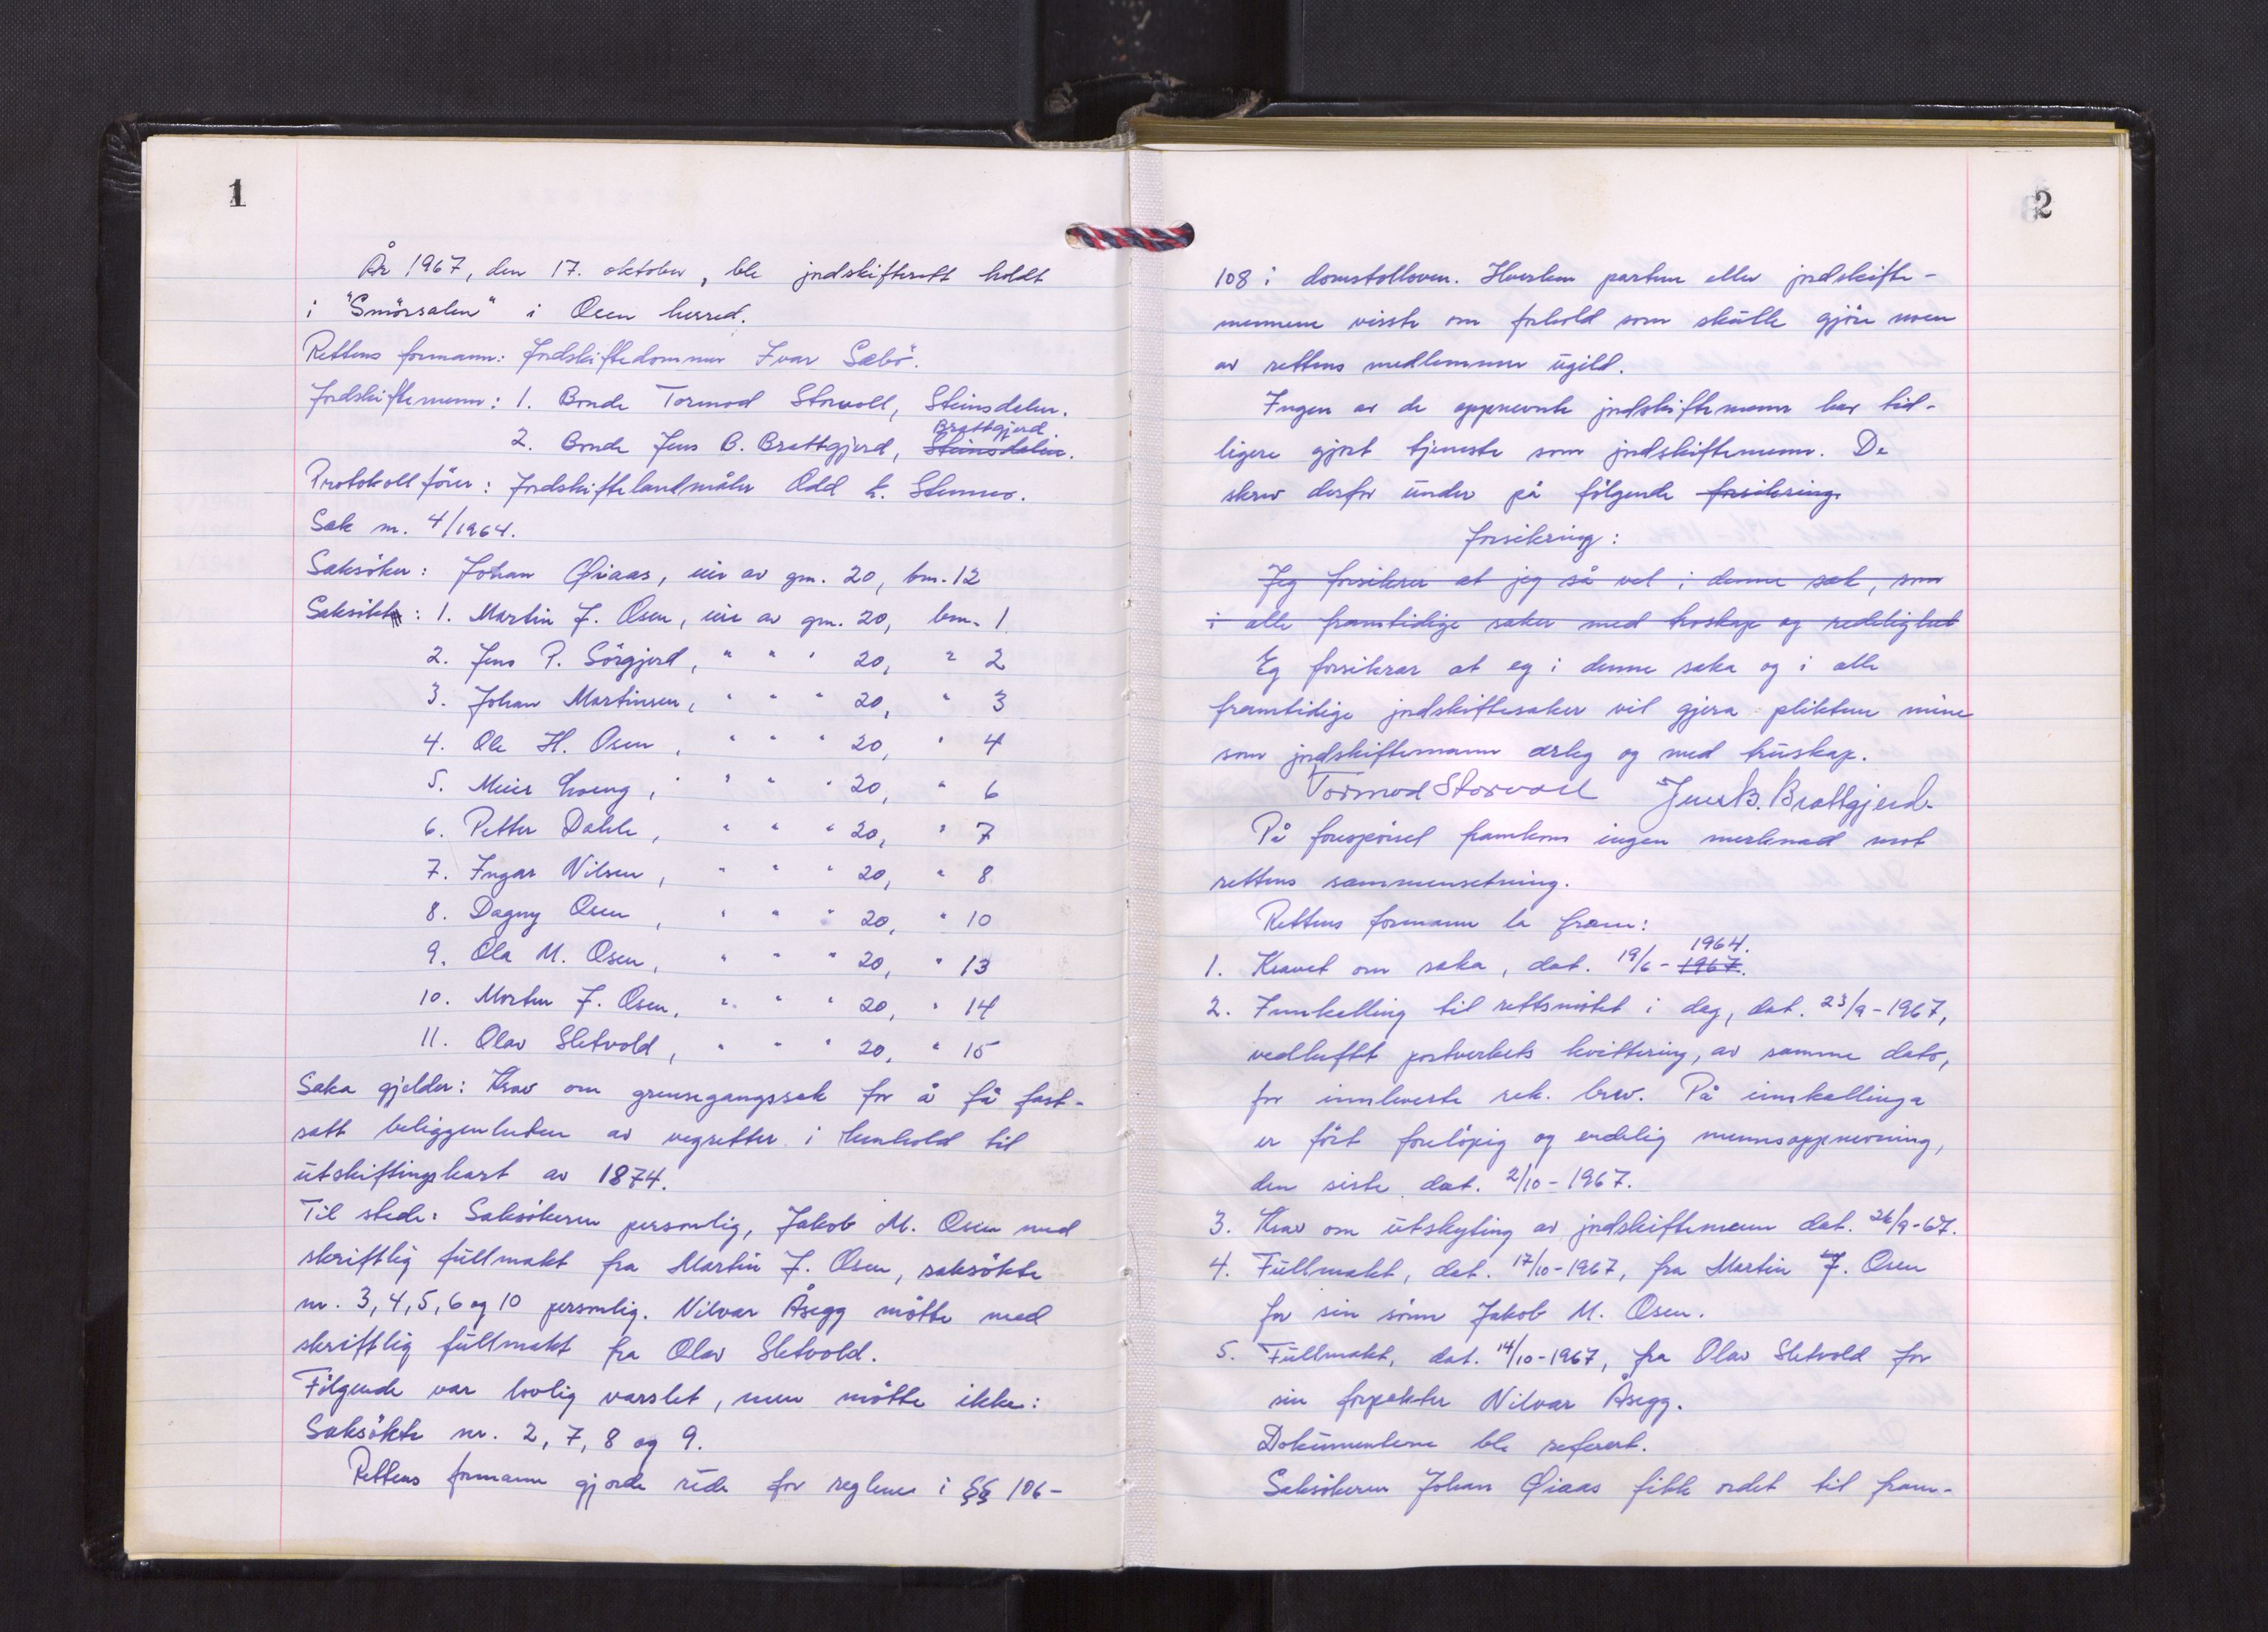 1
År 1967, den 17. oktober, ble jordskifterett holdt
i "Smörsalen" i Osen herred.
Rettens formann: Jordskiftedommer Ivar Sæbö.
Jordskiftemenn: 1. Bonde Tormod Storvoll, Steinsdalen.
Brattgjerd
2. Bonde Jens B. Brattgjerd, Steinsdalen.
Protokollförer: Jordskiftelandmåler Odd K. Stenmo.
Sak nr. 4/1964.
Saksöker: Johan Øiaas, eier av gnr. 20, bnr. 12
Saksökte: 1. Martin J. Osen, eier av gnr. 20, bnr. 1
2. Jens P. Sörgjerd, " " " 20, " 2
3. Johan Martinsen, " " " 20, " 3
4. Ole H. Osen, " " " 20, " 4
5. Meier Loeng, " " " 20, " 6
6. Petter Dahle, " " " 20, " 7
7. Ingar Nilsen, " " " 20, " 8
8. Dagny Osen, " " " 20, " 10
9. Ola M. Osen, " " " 20, " 13
10. Morten J. Osen, " " " 20, " 14
11. Olav Sletvold, " " " 20, " 15
Saka gjelder: Krav om grensegangssak for å få fast-
satt beliggenheten av vegretter i henhold til
utskiftingskart av 1874.
Til stede: Saksökeren personlig, Jakob M. Osen med
skriftlig fullmakt fra Martin J. Osen, saksökte
nr. 3, 4, 5, 6 og 10 personlig. Nilvar Åsegg mötte med
skriftlig fullmakt fra Olav Sletvold.
Fölgende var lovlig varslet, men mötte ikke:
Saksökte nr. 2, 7, 8 og 9.
Rettens formann gjorde rede for reglene i §§ 106-
2
108 i domstolloven. Hverken partene eller jordskifte-
mennene visste om forhold som skulle gjöre noen
av rettens medlemmer ugild.
Ingen av de oppnevnte jordskiftemenn har tid-
ligere gjort tjeneste som jordskiftemenn. De
skrev derfor under på fölgende forsikring
forsikring:
Jeg forsikrer at jeg så vel i denne sak, som
i alle framtidige saker med troskap og redelighet
Eg forsikrar at eg i denne saka og i alle
framtidige jordskiftesaker vil gjera pliktene mine
som jordskiftemann ærleg og med truskap.
Tormod Storvoll Jens B. Brattgjerd
På forespörsel framkom ingen merknad mot
rettens sammensetning.
Rettens formann la fram:
1964.
1. Kravet om saka, dat. 19/6-1967.
2. Innkalling til rettsmötet i dag, dat. 23/9-1967,
vedheftet postverkets kvittering, av samme dato,
for innleverte rek. brev. På innkallinga
er fört forelöpig og endelig mannsoppnevning,
den siste dat. 2/10-1967.
3. Krav om utskyting av jordskiftemenn dat. 26/9-67.
4. Fullmakt, dat. 17/10-1967, fra Martin J. Osen
for sin sönn Jakob M. Osen.
5. Fullmakt, dat. 14/10-1967, fra Olav Sletvold for
sin forpakter Nilvar Åsegg.
Dokumentene ble referert.
Saksökeren Johan Øiaas fikk ordet til fram-